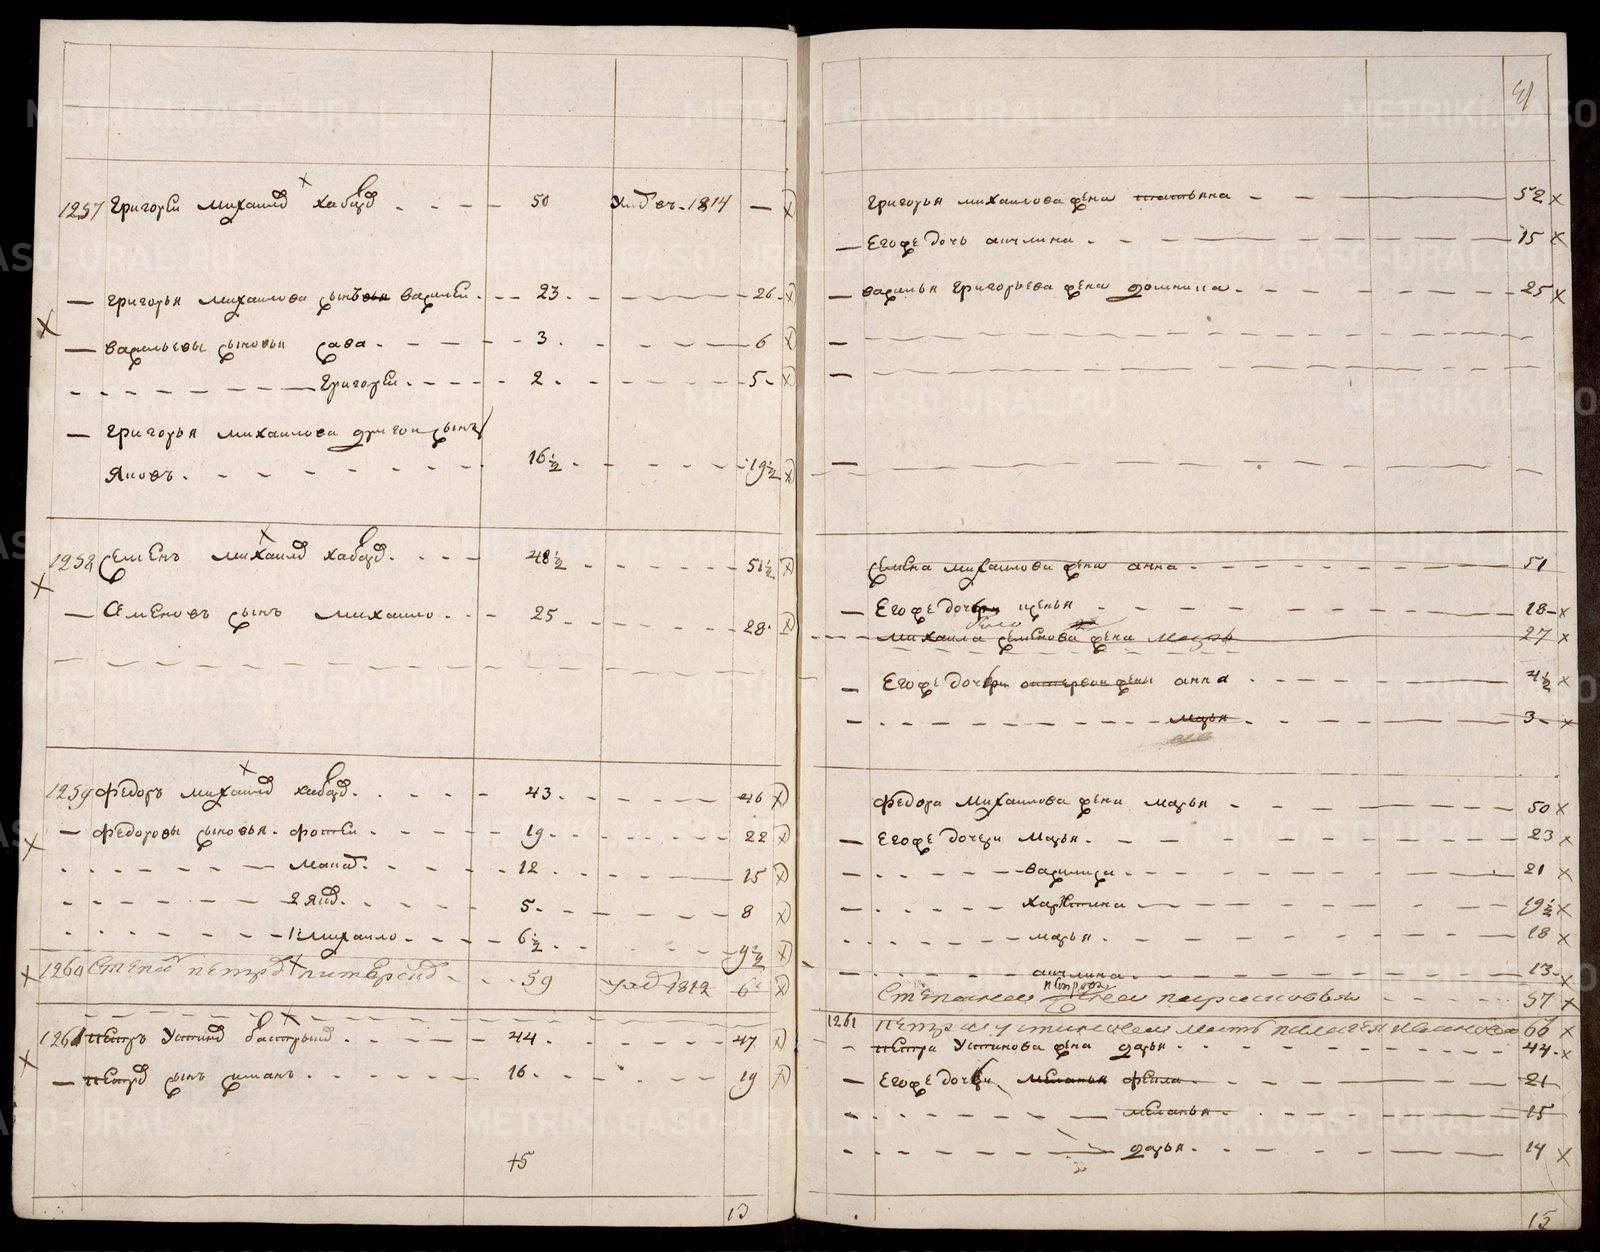 41
1257 Григорей михаилов хабаров 50 Умре въ 1814 —
— григорья михаилова сынъ василей 23 26
— васильевы сыновья сава 3 6
григорей 2 5
— григорья михаилова другой сынъ
яковъ 16½ 19½
1258 семенъ михаилов хабаров 48½ 51½
— семеновъ сынъ михаило 25 28
1259 федоръ михаилов хабаров 43 46
— федоровы сыновья фотей 19 22
15
12
2 яков 5 8
1 михаило 6½ 9½
1260 Степан петров 59 1812
1261 петръ Устинов 44 47
— петров сынъ симанъ 16 19
15
13
григорья михаилова жена татьяна 52
— Его же дочь акулина 15
— василья григорьева жена домника 25
семена михаилова жена анна 51
— Его же дочь ксенья 18
михаила семенова жена марья 27
— Его же дочь анна 4½
марья 3
федора михаилова жена марья 50
— Его же дочери марья 23
василиса 21
харитина 19½
марья 18
акулина 13
Степанова жена парасковья 57
1261 петра устинова мать пелагея иванова 66
петра Устинова жена дарья 44
— Его же дочь меланья фекла 21
меланья 15
дарья 14
15
METRIKI.GASO-URAL.RU